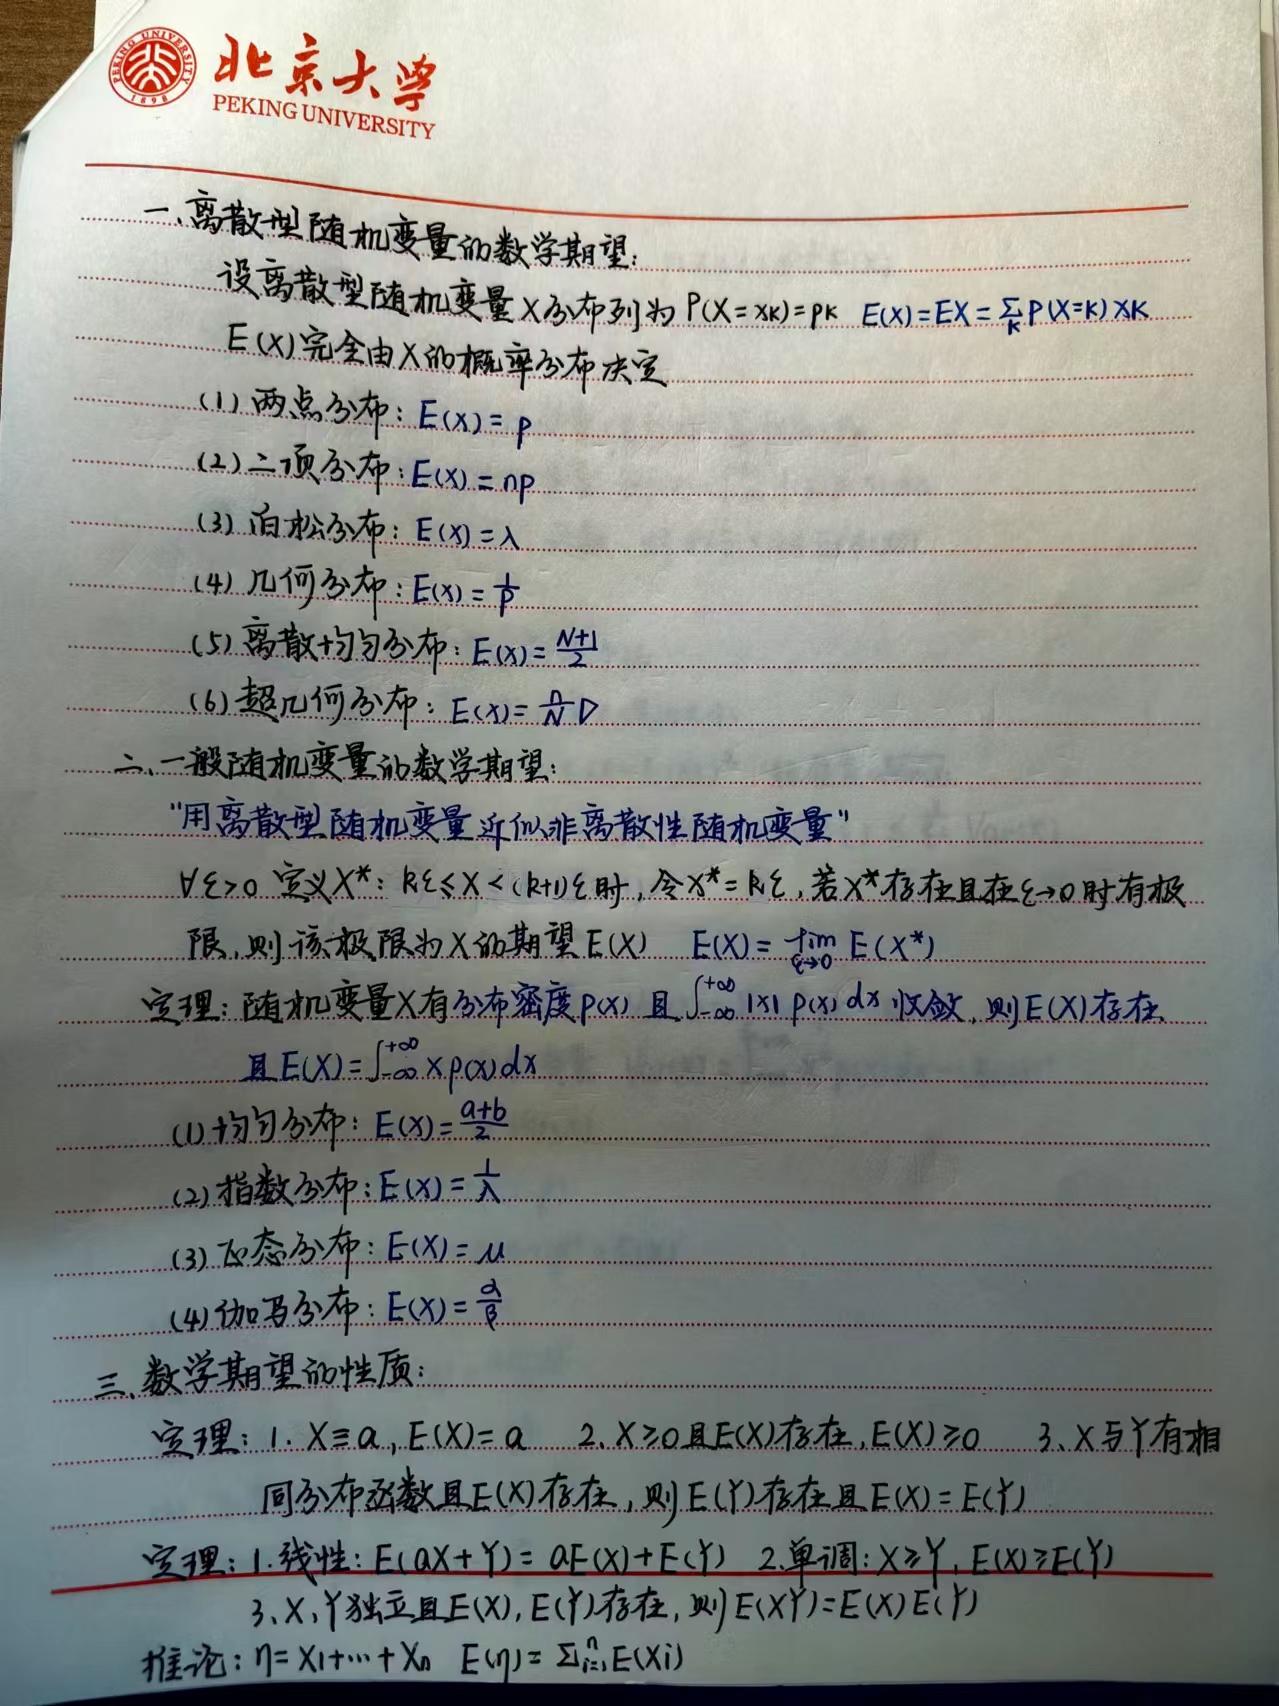 PEKING UNIVERSITY
1898
北京大学
PEKING UNIVERSITY
一、离散型随机变量的数学期望:
设离散型随机变量X分布列为 P(X=xk)=pk E(X)=EX=∑k P(X=K) XK
E(X)完全由X的概率分布决定
(1) 两点分布: E(X)=p
(2) 二项分布: E(X)=np
(3) 泊松分布: E(X)=λ
(4) 几何分布: E(X)=1/p
(5) 离散均匀分布: E(X)=(N+1)/2
(6) 超几何分布: E(X)=n/N D
二、一般随机变量的数学期望:
"用离散型随机变量近似非离散性随机变量"
∀ε>0 定义X*: kε≤X<(k+1)ε时,令X*=kε,若X*存在且在ε→0时有极
限,则该极限为X的期望E(X) E(X)=lim ε→0 E(X*)
定理:随机变量X有分布密度p(x) 且∫_{-∞}^{+∞} |x| p(x) dx 收敛,则E(X)存在
且E(X)=∫_{-∞}^{+∞} x p(x) dx
(1) 均匀分布: E(X)=(a+b)/2
(2) 指数分布: E(X)=1/λ
(3) 正态分布: E(X)=μ
(4) 伽马分布: E(X)=α/β
三、数学期望的性质:
定理: 1. X≡a, E(X)=a 2. X≥0且E(X)存在, E(X)≥0 3. X与Y有相
同分布函数且E(X)存在,则E(Y)存在且E(X)=E(Y)
定理: 1.线性: E(aX+Y)=aE(X)+E(Y) 2.单调: X≥Y, E(X)≥E(Y)
3、X,Y独立且E(X),E(Y)存在,则E(XY)=E(X)E(Y)
推论: η=X1+…+Xn E(η)=∑_{i=1}^{n} E(Xi)